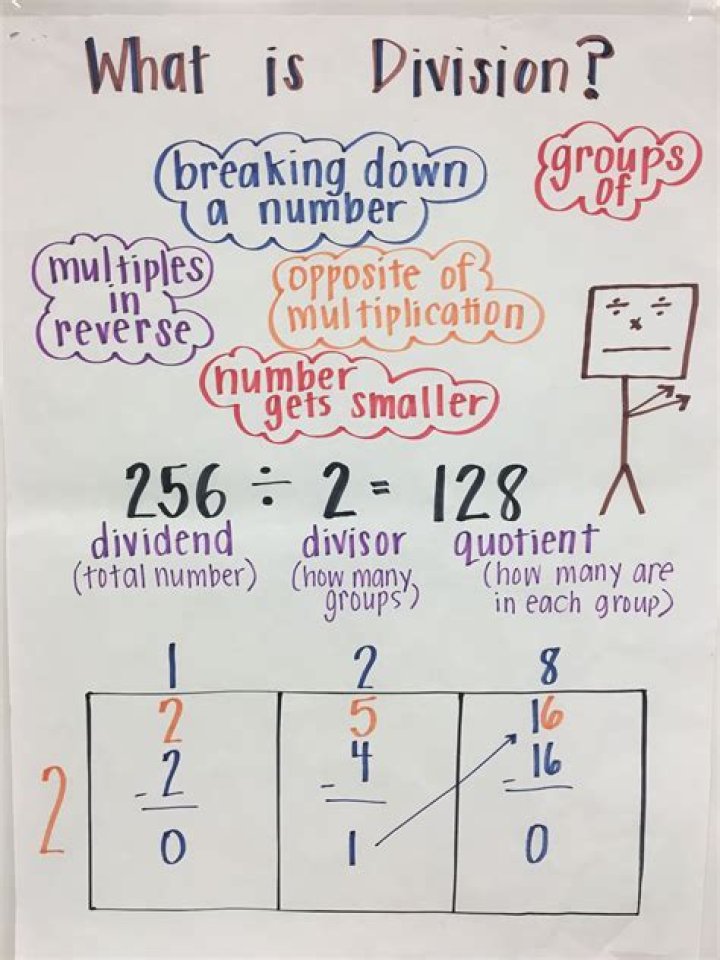 What is Division?
breaking down
a number
groups
of
multiples
in
reverse
opposite of
multiplication
number
gets smaller
÷ ÷
x
256 ÷ 2 = 128
dividend divisor quotient
(total number) (how many groups) (how many are in each group)
1 2 8
2 5 16
2
-2 -4 -16
0 1 0